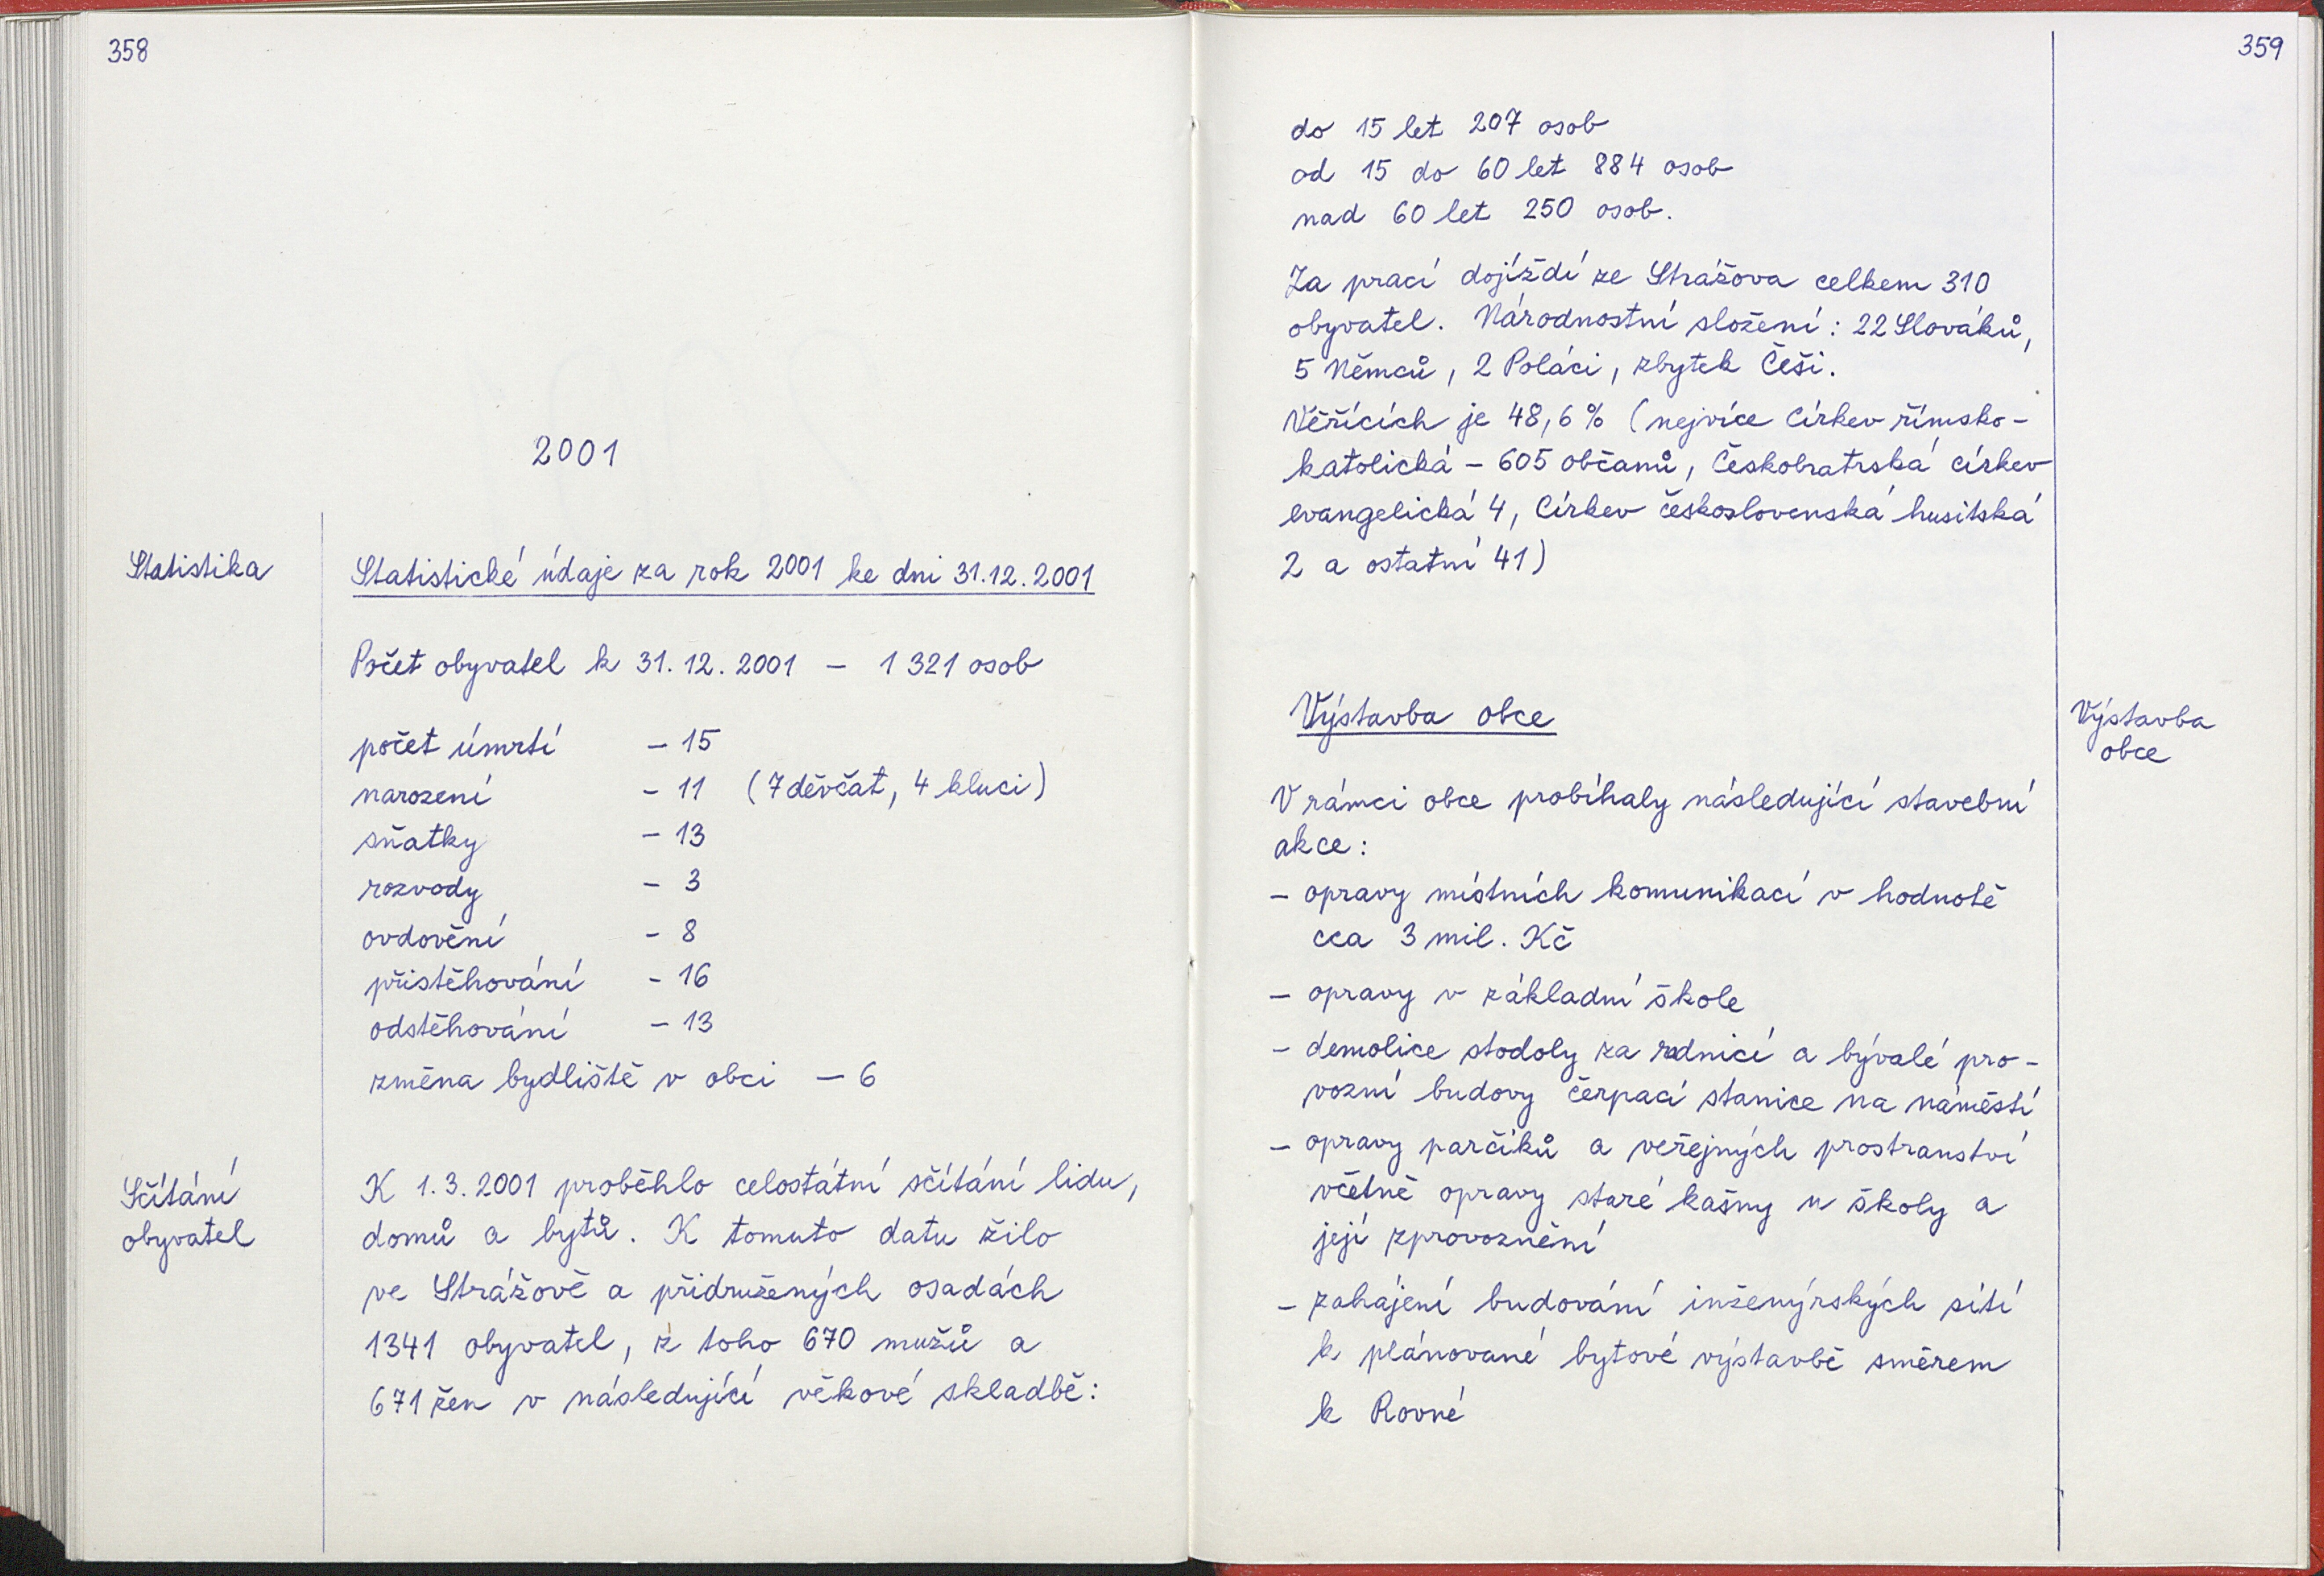 358
2001
Statistika
Statistické údaje za rok 2001 ke dni 31.12.2001
Počet obyvatel k 31. 12. 2001 – 1 321 osob
počet úmrtí – 15
narození – 11 (7 děvčat, 4 kluci)
sňatky – 13
rozvody – 3
ovdovění – 8
přistěhování – 16
odstěhování – 13
změna bydliště v obci – 6
Sčítání
obyvatel
K 1. 3. 2001 proběhlo celostátní sčítání lidu,
domů a bytů. K tomuto datu žilo
ve Strážově a přidružených osadách
1341 obyvatel, z toho 670 mužů a
671 žen v následující věkové skladbě:
359
do 15 let 207 osob
od 15 do 60 let 884 osob
nad 60 let 250 osob.
Za prací dojíždí ze Strážova celkem 310
obyvatel. Národnostní složení: 22 Slováků,
5 Němců, 2 Poláci, zbytek Češi.
Věřících je 48,6 % (nejvíce Církev římsko-
katolická – 605 občanů, Českobratrská církev
evangelická 4, Církev československá husitská
2 a ostatní 41)
Výstavba obce
Výstavba
obce
V rámci obce probíhaly následující stavební
akce:
– opravy místních komunikací v hodnotě
cca 3 mil. Kč
– opravy v základní škole
– demolice stodoly za radnicí a bývalé pro-
vozní budovy čerpací stanice na náměstí
– opravy parčíků a veřejných prostranství
včetně opravy staré kašny u školy a
její zprovoznění
– zahájení budování inženýrských sítí
k plánované bytové výstavbě směrem
k Rovné